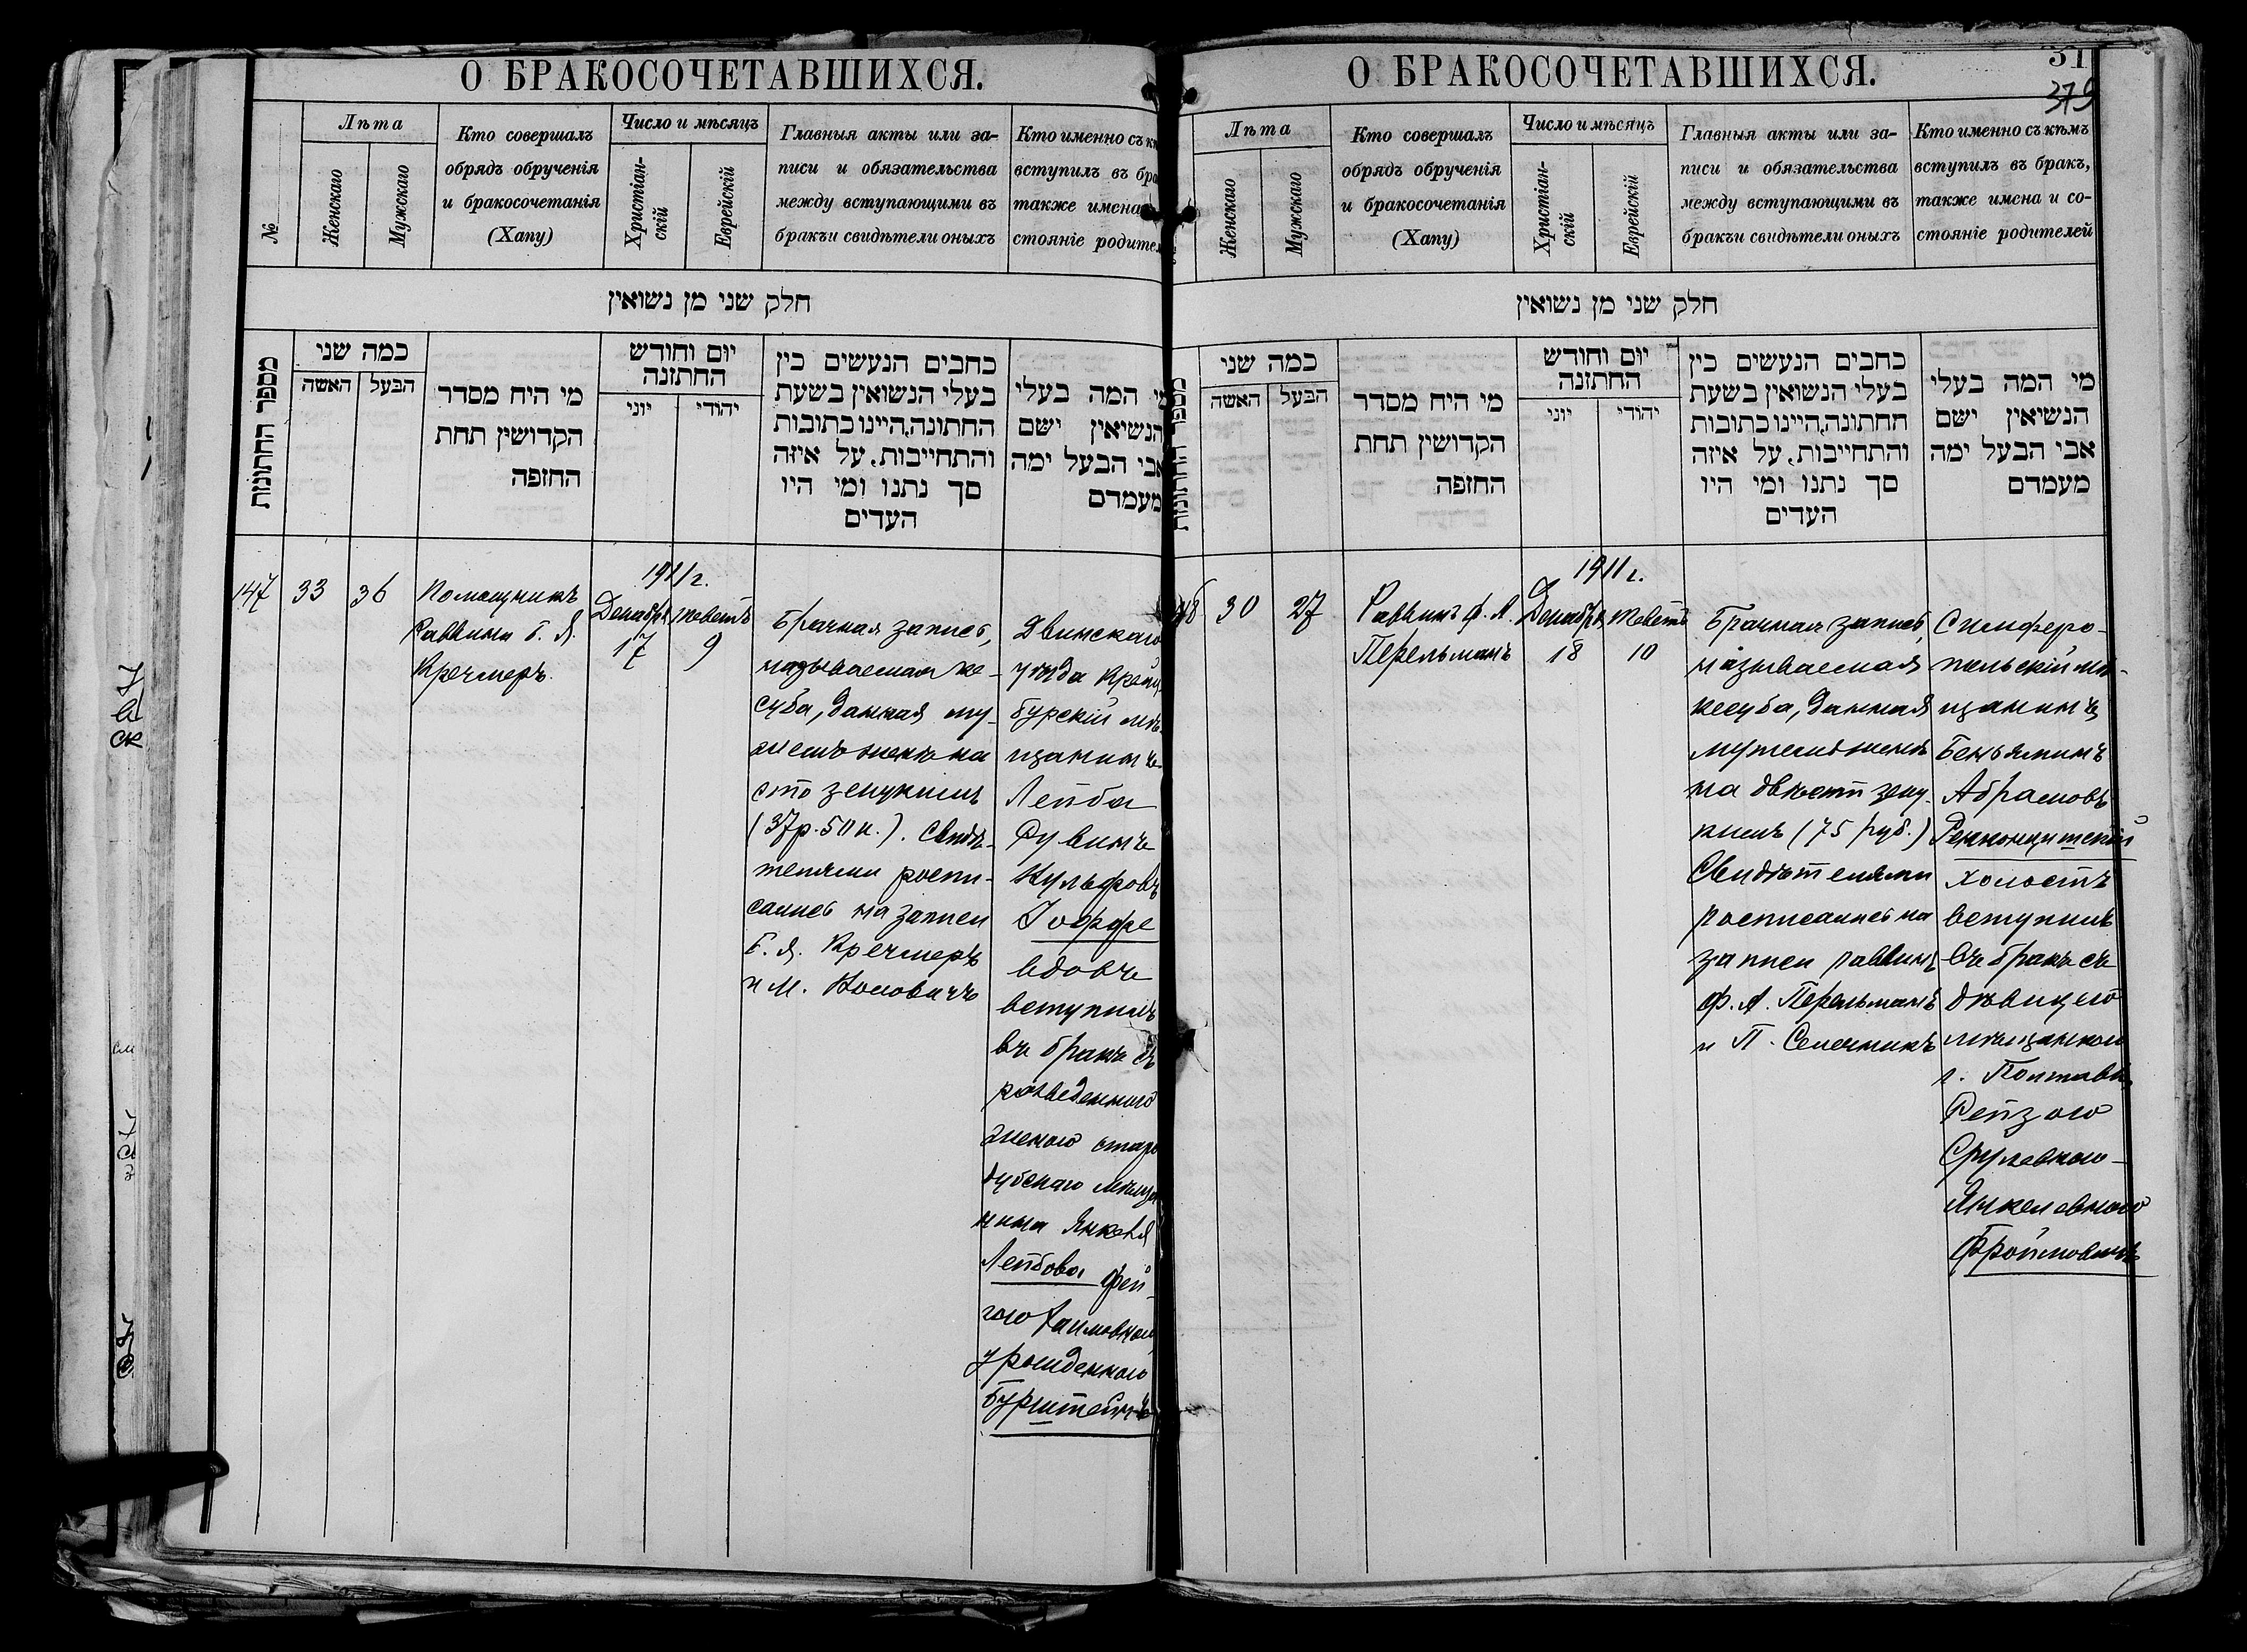 О БРАКОСОЧЕТАВШИХСЯ.
№
Лѣта
Женскаго
Мужскаго
Кто совершалъ
обрядъ обрученія
и бракосочетанія
(Хапу)
Число и мѣсяцъ
Христіан-
скій
Еврейскій
Главныя акты или за-
писи и обязательства
между вступающими въ
бракъи свидѣтели оныхъ
Кто именно съ
вступилъ въ бра
также имена
стояніе родител
חלק שני מן נשואין
מספר החתונות
כמה שני
האשה
הבעל
מי היח מסדר
הקדושין תחת
החזפה
יום וחודש
החתזנה
יוני
יהודי
כחבים הנעשים כין
בעלי הנשואין בשעת
החתונה,היינו כתובות
והתחייבות, על איזה
סך נתנו ומי היו
העדים
מי המה בעלי
הנשיאין ישם
אבי הבעל ימה
מעמדם
147
33
36
Помощникъ
раввина Б. Я.
Кречмеръ.
1911 г.
Декабрь
17
Теветъ
9
Брачная запись,
называемая ке-
суба, данная му-
жемъ женѣ на
сто зекукимъ
(37р. 50 к.). Свидѣ-
телями распи-
сались на записи
Б. Я. Кречмеръ
и М.
Двинскаго
уѣзда
бурскій мѣ-
щанинъ
Лейба
Рувинъ
Кульфовъ
Іоффе
вдовъ
вступилъ
въ бракъ съ
разведенною
женою старо
дубскаго мѣща
нина Янкеля
Лейбова Фей-
гою Хаимовною,
урожденною
Бурштейнъ
О БРАКОСОЧЕТАВШИХСЯ.
31
379
Лѣта
Женскаго
Мужскаго
Кто совершалъ
обрядъ обрученія
и бракосочетанія
(Хапу)
Число и мѣсяцъ
Христіан-
скій
Еврейскій
Главныя акты или за-
писи и обязательства
между вступающими въ
бракъи свидѣтели оныхъ
Кто именно съ кѣмъ
вступилъ въ бракъ,
также имена и со-
стояніе родителей
חלק שני מן נשואין
כמה שני
האשה
הבעל
מי היח מסדר
הקדושין תחת
החזפה
יום וחודש
החתזנה
יוני
יהודי
כחבים הנעשים כין
בעלי הנשואין בשעת
חחתונה,היינו כתובות
והתחייבות, על איזה
סך נתנו ומי היו
העדים
מי המה בעלי
הנשיאין ישם
אבי הבעל ימה
מעמדם
148
30
27
Раввинъ Ф. А.
Перельманъ
1911 г.
Декабрь
18
Теветъ
10
Брачная запись,
называемая
кесуба, данная
мужемъ женѣ
на двѣсти зеку-
кимъ (75 руб.)
Свидѣтелями
расписались на
записи раввинъ
Ф. А. Перельманъ
и П.
Симферо-
польскій мѣ-
щанинъ
Беньяминъ
Абрамовъ
холостъ
вступилъ
въ бракъ съ
дѣвицею
мѣщанкою
г. Полтавы
Рейзою
Срулевною-
Янкелевною